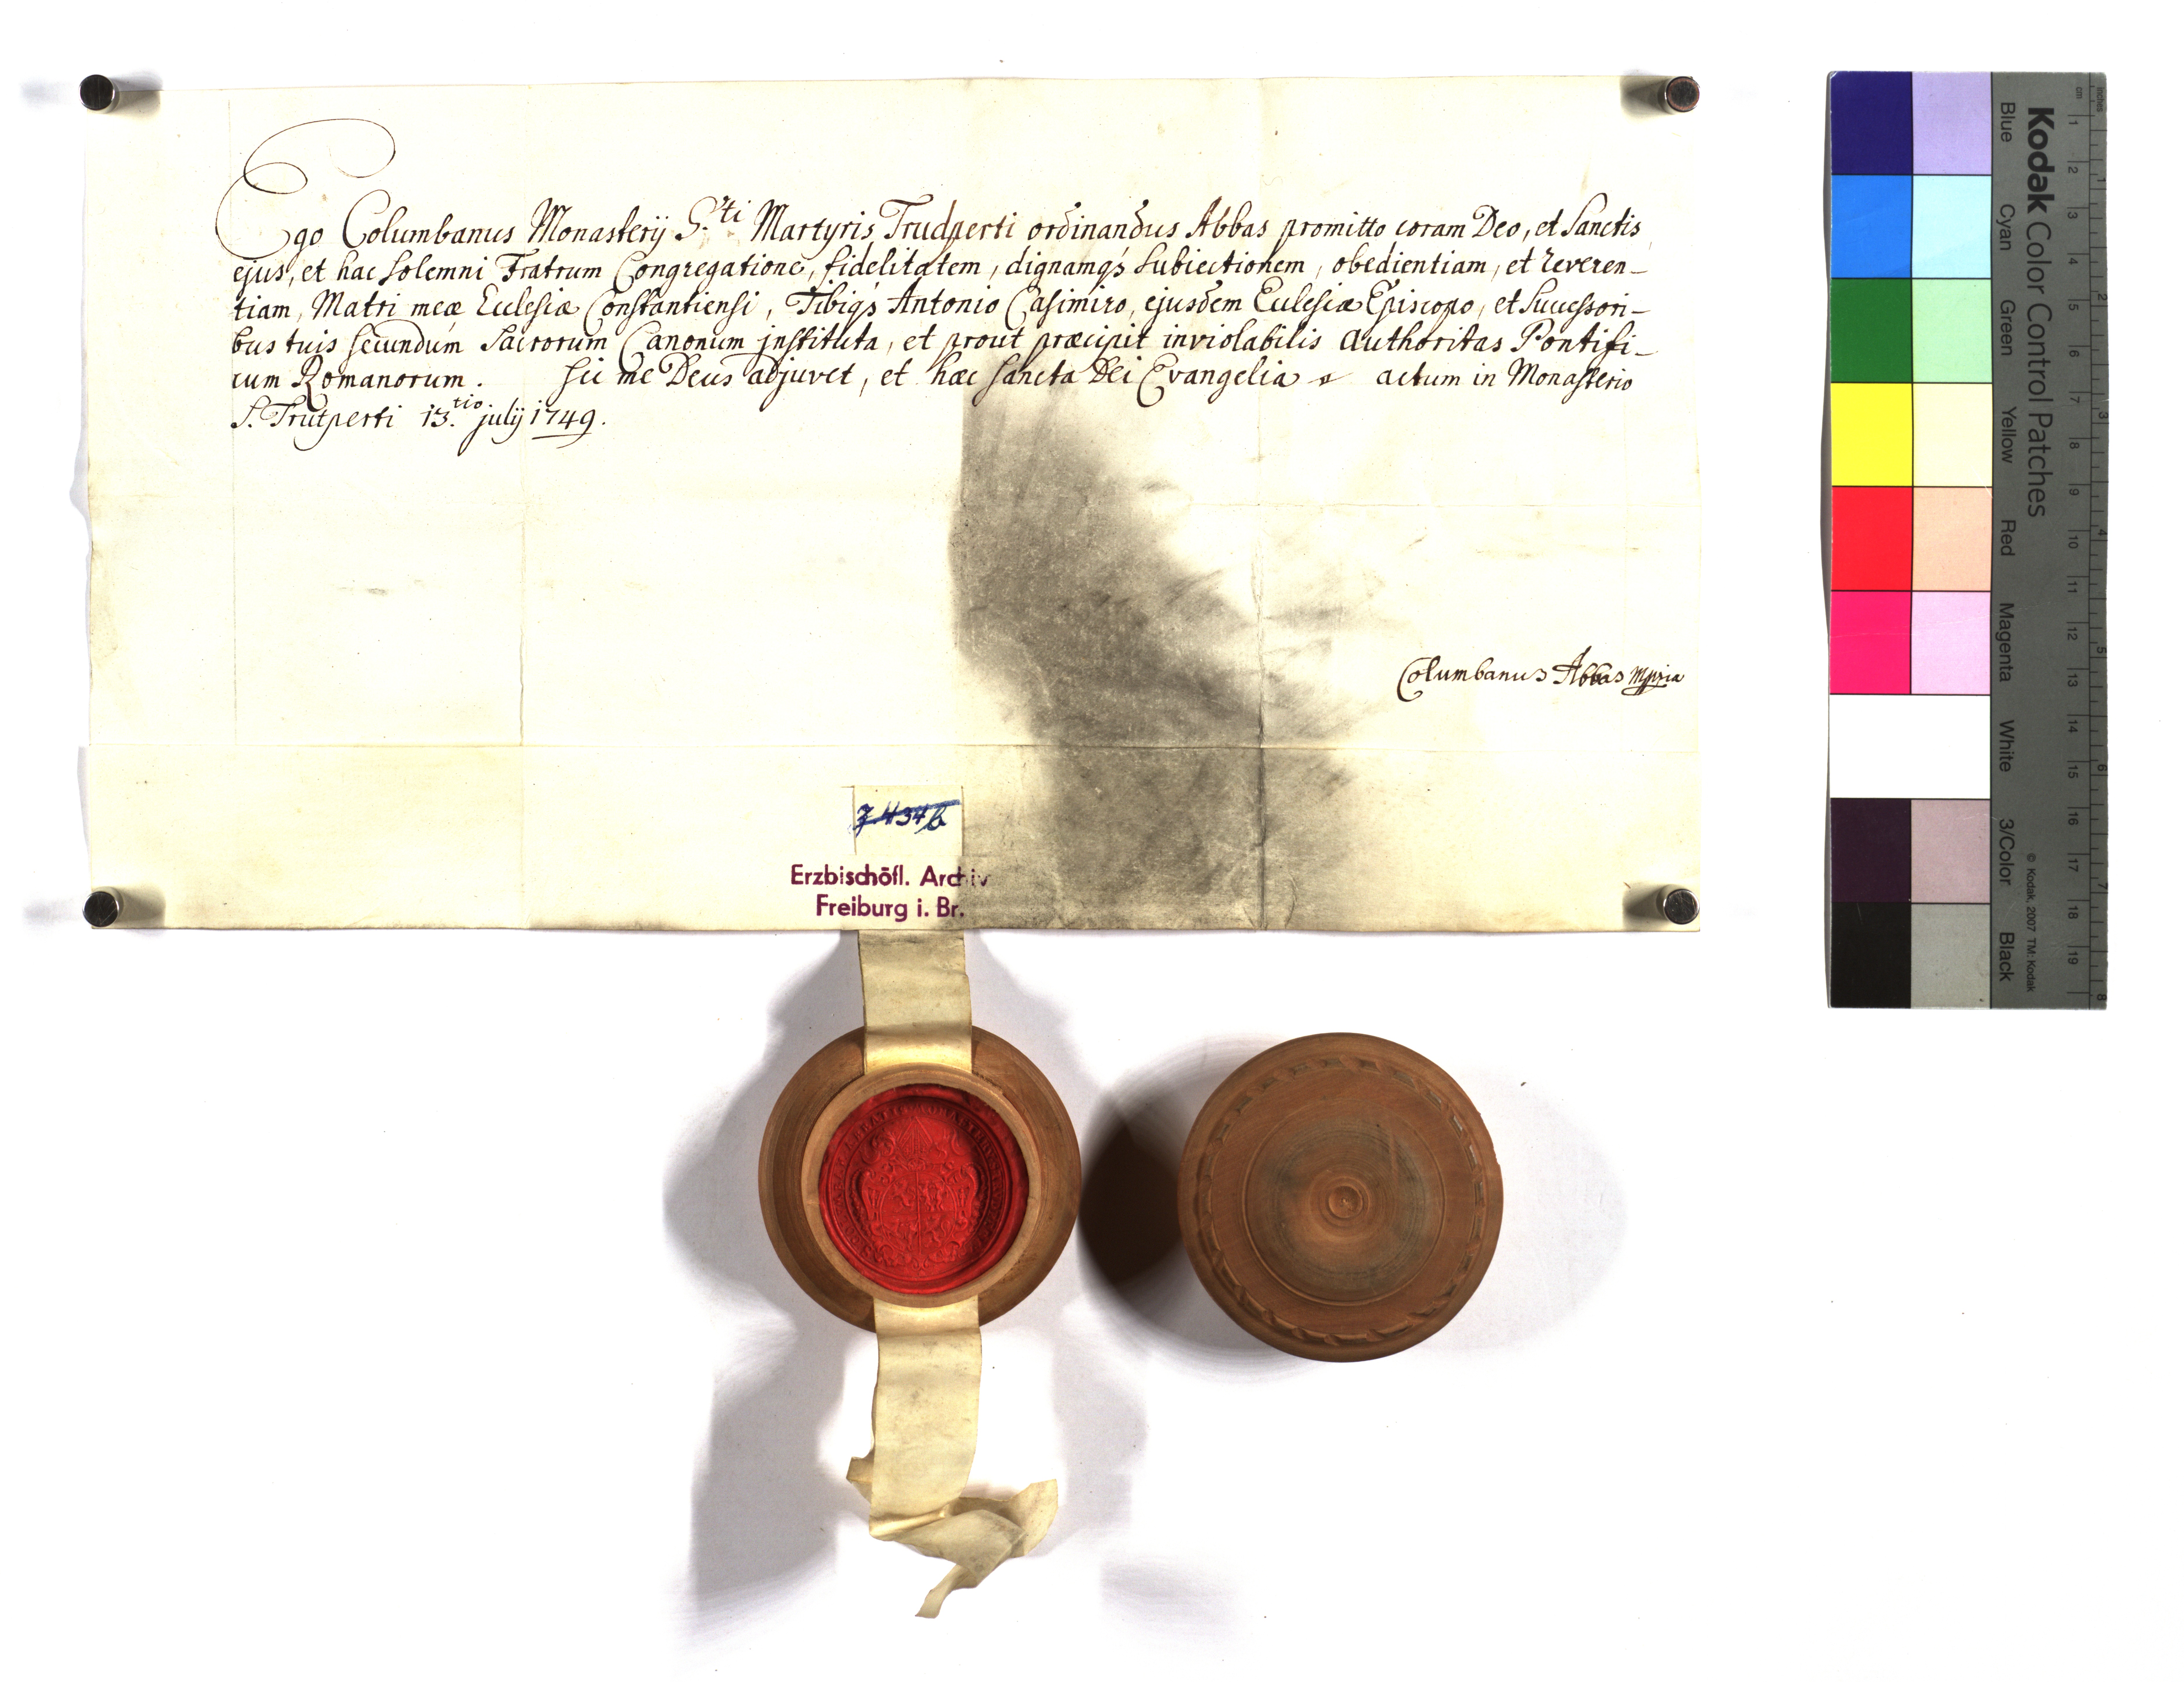 Ego Columbanus Monasterij S.ti Martyris Trudperti ordinandus Abbas promitto coram Deo, et Sanctis
ejus, et hac solemni Fratrum Congregatione, fidelitatem, dignamq́s subiectionem, obedientiam, et reveren-
tiam, Matri meæ Ecclesiæ Constantiensi, Tibiq́s Antonio Casimiro, ejusdem Ecclesiæ Episcopo, et Successori-
bus tuis secundum Sacrorum Canonum instituta, et prout præcipit inviolabilis authoritas Pontifi-
cum Romanorum. Sic me Deus adjuvet, et hæc sancta Dei Evangelia actum in Monasterio
S. Trutperti 13.tio julij 1749.
Columbanus Abbas mppria
Erzbischöfl. Archiv
Freiburg i. Br.
Kodak Color Control Patches
Blue Cyan Green Yellow Red Magenta White 3/Color Black
© Kodak, 2007 TM: Kodak
cm 1 2 3 4 5 6 7 8 9 10 11 12 13 14 15 16 17 18 19
inches 1 2 3 4 5 6 7 8